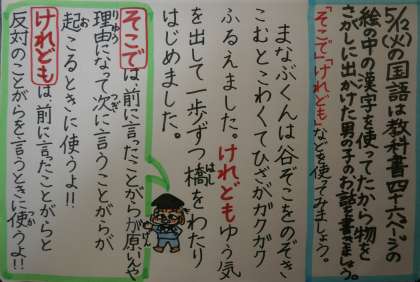 5/12(火)の国語は教科書四十六ページの
絵の中の漢字を使ってたから物を
さがしに出かけた男の子のお話を書きましょう。
「そこで」「けれども」などを使ってみましょう。
まなぶくんは谷ぞこをのぞき
こむとこわくてひざがガクガク
ふるえました。けれどもゆう気
を出して一歩ずつ橋をわたり
はし
はじめました。
そこでは、前に言ったことがらが原いや
げん
理由になって次に言うことがらが
りゆう
つぎ
起こるときに使うよ!!
けれどもは、前に言ったことがらと
反対のことがらを言うときに使うよ!!
つか